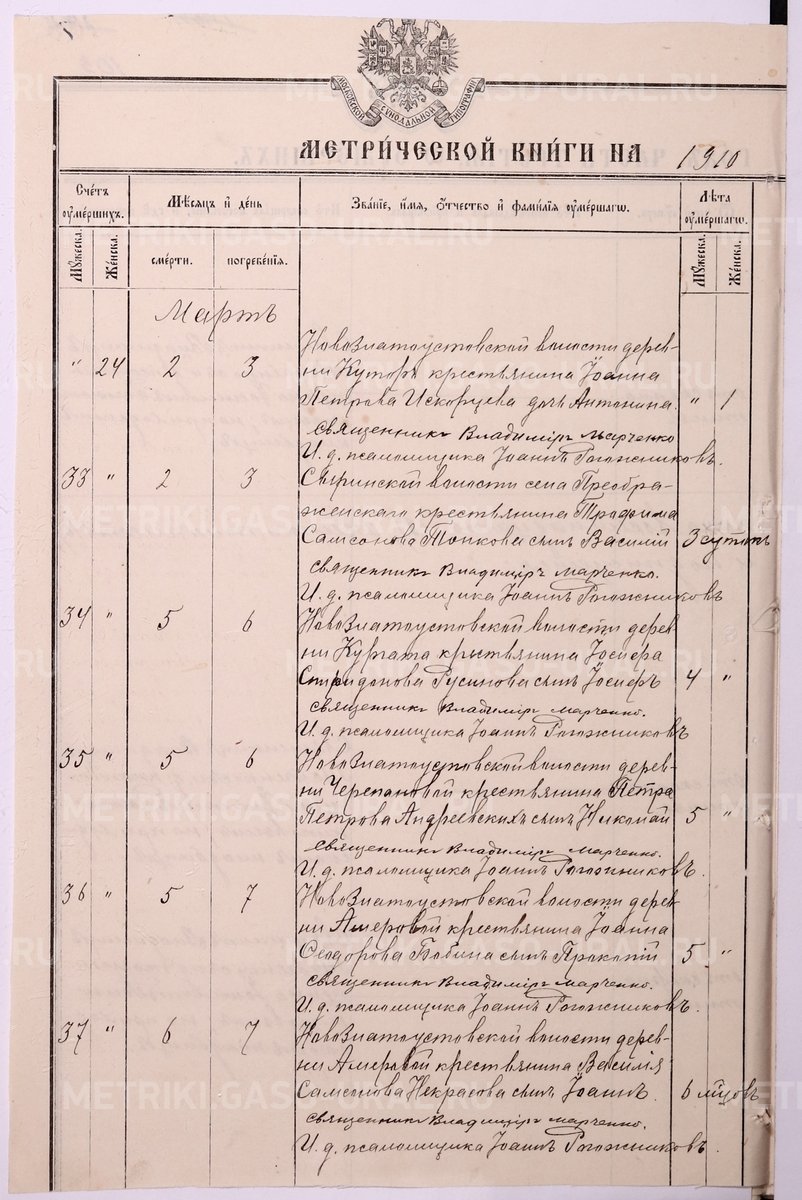 МОСКОВСКОЙ СѴНОДАЛЬНОЙ ТИПОГРАФІИ
МЕТРИ́ЧЕСКОЙ КНИ́ГИ НА 1910
Сче́тъ оуме́ршихъ. Мѣ́сяцъ и҆ де́нь Зва́нїе, и҆́мя, ѻ҆́тчество и҆ фами́лїя оуме́ршагѡ. Лѣ́та оуме́ршагѡ.
Мꙋ́жеска. Же́нска. сме́рти. погребе́нїя. Мꙋ́жеска. Же́нска.
Мартъ
Новозлатоустовской волости дерев-
" 24 2 3 ни Кутора крестьянина Іоанна
Петрова Искорцева дочь Антонина. " 1
Священникъ Владиміръ Марченко
И. д. псаломщика Іоаннъ Рогожниковъ.
33 " 2 3 Сыринской волости села Преобра-
женскаго крестьянина Трофима
Самсонова Топкова сынъ Василій 3 сутокъ
Священникъ Владиміръ Марченко.
И. д. псаломщика Іоаннъ Рогожниковъ
34 " 5 6 Новозлатоустовской волости дерев
ни Кургата крестьянина Іосифа
Спиридонова Русинова сынъ Іосифъ 4 "
Священникъ Владиміръ Марченко.
И. д. псаломщика Іоаннъ Рогожниковъ
35 " 5 6 Новозлатоустовской волости дерев-
ни Черепановой крестьянина Петра
Петрова Андреевскихъ сынъ Николай 5 "
Священникъ Владиміръ Марченко.
И. д. псаломщика Іоаннъ Рогожниковъ.
36 " 5 7 Новозлатоустовской волости дерев-
ни Амеровой крестьянина Іоанна
Ѳеодорова Бабина сынъ Прокопій 5 "
Священникъ Владиміръ Марченко.
И. д. псаломщика Іоаннъ Рогожниковъ.
37 " 6 7 Новозлатоустовской волости дерев-
ни Амеровой крестьянина Василія
Самсонова Некрасова сынъ Іоаннъ. 6 мцовъ
Священникъ Владиміръ Марченко.
И. д. псаломщика Іоаннъ Рогожниковъ.
METRIKI.GASO-URAL.RU